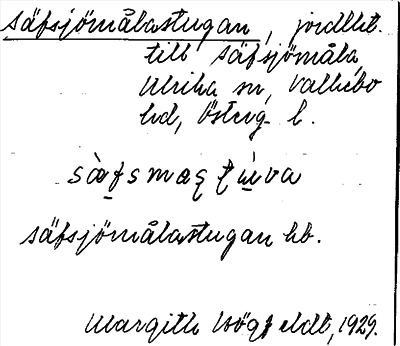 säfsjömålastugan, jordlht.
till säfsjömåla,
Ulrika sn, Vallebo
hd, Österg. l.
säfsjömålastugan hb.
Margith Högfeldt, 1929.